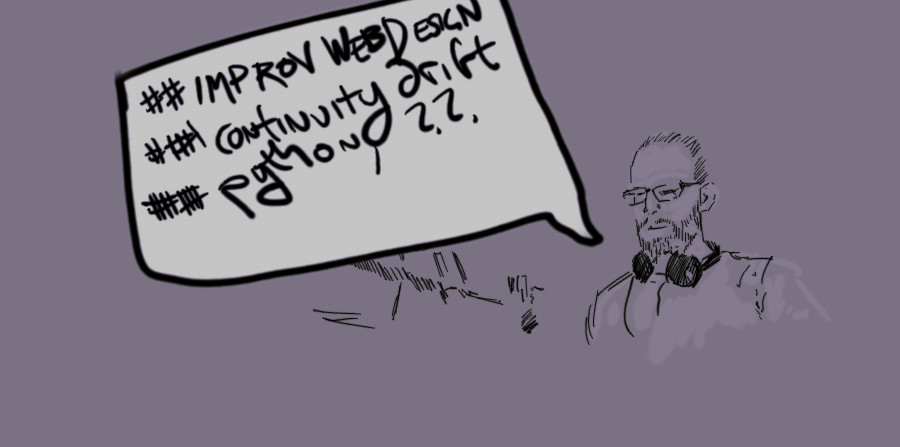 ## IMPROV WEBDESIGN
### CONTINUITY drift
### python, ??